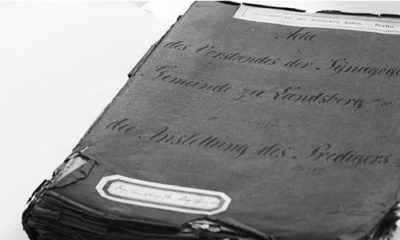 der deutschen Juden Berlin
Acta
des Vorstandes der Synagoge
Gemeinde zu Landsberg a/W
die Anstellung des Predigers